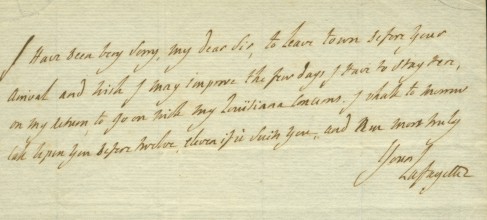 I Have Been very Sorry, my dear Sir, to leave town Before your
Arrival and wish I may improve the few days I Have to Stay Here,
on my return to go on with my Louisiana Concerns, I shall to morrow
Call Upon You Before twelve, eleven if it Suits You, and am most truly
Yours
Lafayette